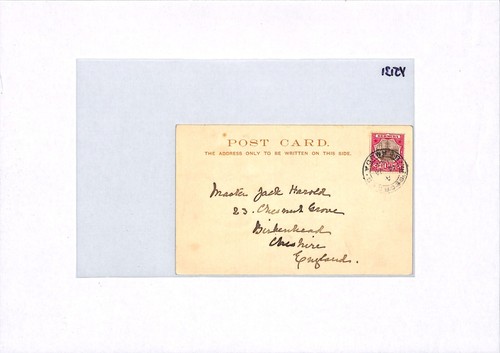 YS131
POST CARD.
THE ADDRESS ONLY TO BE WRITTEN ON THIS SIDE.
Master Jack Harold
23. Chesnut Grove
Birkenhead
Cheshire
England.